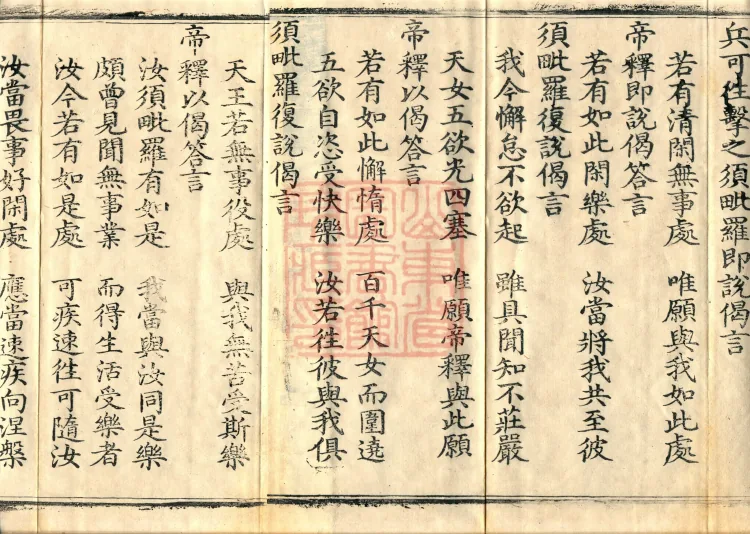 兵可往擊之須毗羅即說偈言
若有清閑無事處 唯願與我如此處
帝釋即說偈答言
若有如此閑樂處 汝當將我共至彼
須毗羅復說偈言
我今懈怠不欲起 雖具聞知不莊嚴
天女五欲光四塞 唯願帝釋與此願
帝釋以偈答言
若有如此懈惰處 百千天女而圍遶
五欲自恣受快樂 汝若往彼與我俱
須毗羅復說偈言
天王若無事役處 與我無苦受斯樂
帝釋以偈答言
汝須毗羅有如是 我當與汝同是樂
頗曾見聞無事業 而得生活受樂者
汝今若有如是處 可疾速往可隨汝
汝當畏事好閑處 應當速疾向涅槃